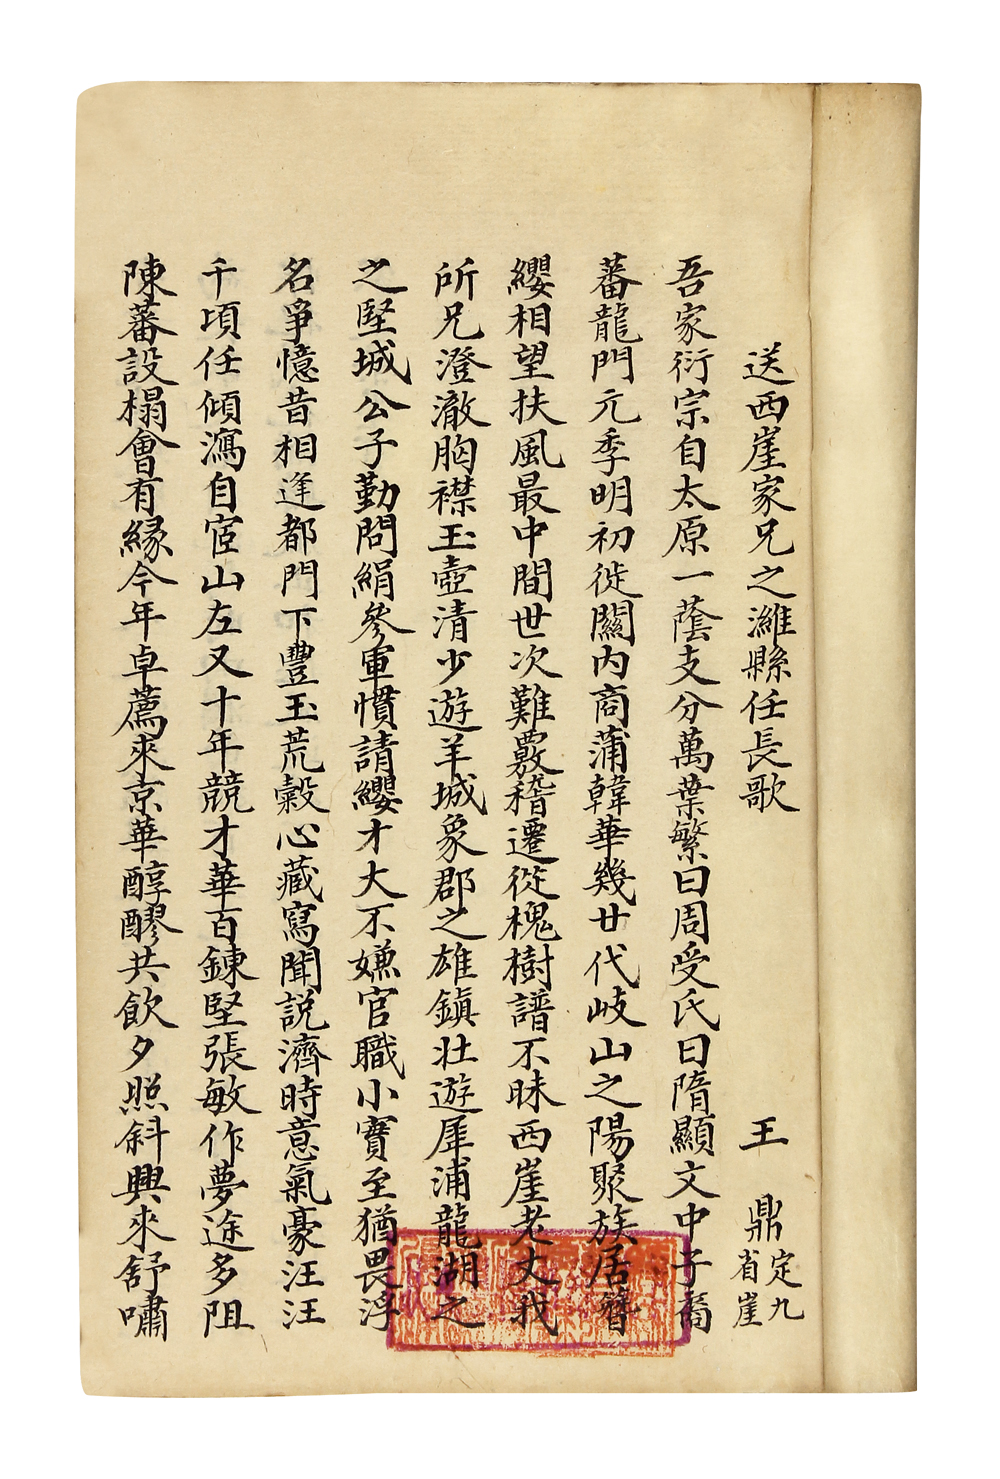 送西崖家兄之濰縣任長歌
王　鼎　定九
省崖
吾家衍宗自太原一蔭支分萬葉繁曰周受氏曰隋顯文中子裔
蕃龍門元季明初徙關內商蒲韓華幾廿代岐山之陽聚族居簪
纓相望扶風最中間世次難覈稽遷從槐樹譜不昧西崖老丈我
所兄澄澈胸襟玉壺清少遊羊城象郡之雄鎮壯遊犀浦龍湖之
之堅城公子勤問絹參軍慣請纓才大不嫌官職小寶至猶畏浮
名爭憶昔相逢都門下豐玉荒穀心藏寫聞說濟時意氣豪汪汪
千頃任傾瀉自宦山左又十年競才華百鍊堅張敏作夢途多阻
陳蕃設榻會有緣今年卓薦來京華醇醪共飲夕照斜興來舒嘯